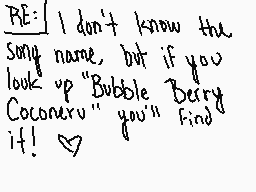 RE: I don't know the
song name, but if you
look up "Bubble Berry
Coconeru" you'll find
it! ♡